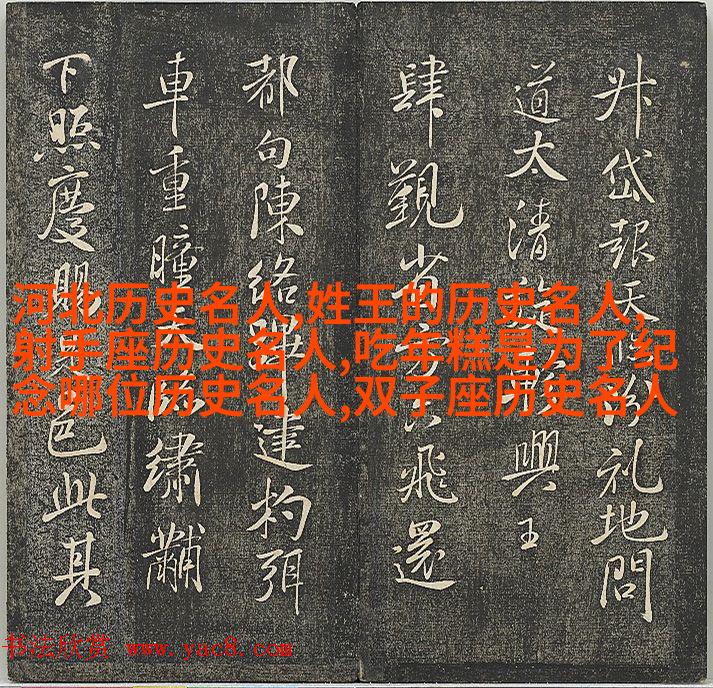 升岱報天礼地問
道太清興王
肆覲省方飛還
都句陳絡建杓弭
車重瞳繡黼
下照慶賜邑此其
河北历史名人,姓王的历史名人,
射手座历史名人,吃年糕是为了纪
念哪位历史名人,双子座历史名人
书法欣赏 www.yac8.com